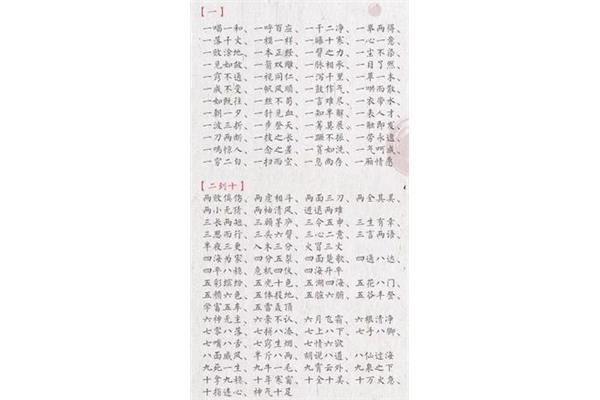 【一】
一唱一和、一呼百应、一干二净、一举两得、
一落千丈、一模一样、一曝十寒、一心一意、
一败涂地、一本正经、一臂之力、一尘不染、
一见如故、一箭双雕、一脉相承、一目了然、
一窍不通、一视同仁、一泻千里、一草一木、
一成不变、一帆风顺、一鼓作气、一哄而散、
一如既往、一丝不苟、一言难尽、一衣带水、
一朝一夕、一针见血、一知半解、一表人才、
一波三折、一步登天、一筹莫展、一触即发、
一刀两断、一技之长、一蹶不振、一劳永逸、
一鸣惊人、一念之差、一贫如洗、一气呵成、
一穷二白、一扫而空、一息尚存、一厢情愿
【二到十】
两败俱伤、两虎相斗、两面三刀、两全其美、
两小无猜、两袖清风、进退两难
三长两短、三顾茅庐、三令五申、三生有幸、
三思而行、三头六臂、三心二意、三言两语、
半夜三更、入木三分、火冒三丈
四海为家、四分五裂、四面楚歌、四通八达、
四平八稳、危机四伏、四海升平
五彩缤纷、五光十色、五湖四海、五花八门、
五颜六色、五体投地、五脏六腑、五谷丰登、
学富五车、五雷轰顶
六神无主、六亲不认、六月飞霜、六根清净
七零八落、七拼八凑、七上八下、七手八脚、
七嘴八舌、七窍生烟、七情六欲
八面威风、半斤八两、胡说八道、八仙过海
九死一生、九牛一毛、九霄云外、九泉之下
十拿九稳、十年寒窗、十全十美、十万火急、
十指连心、神气十足